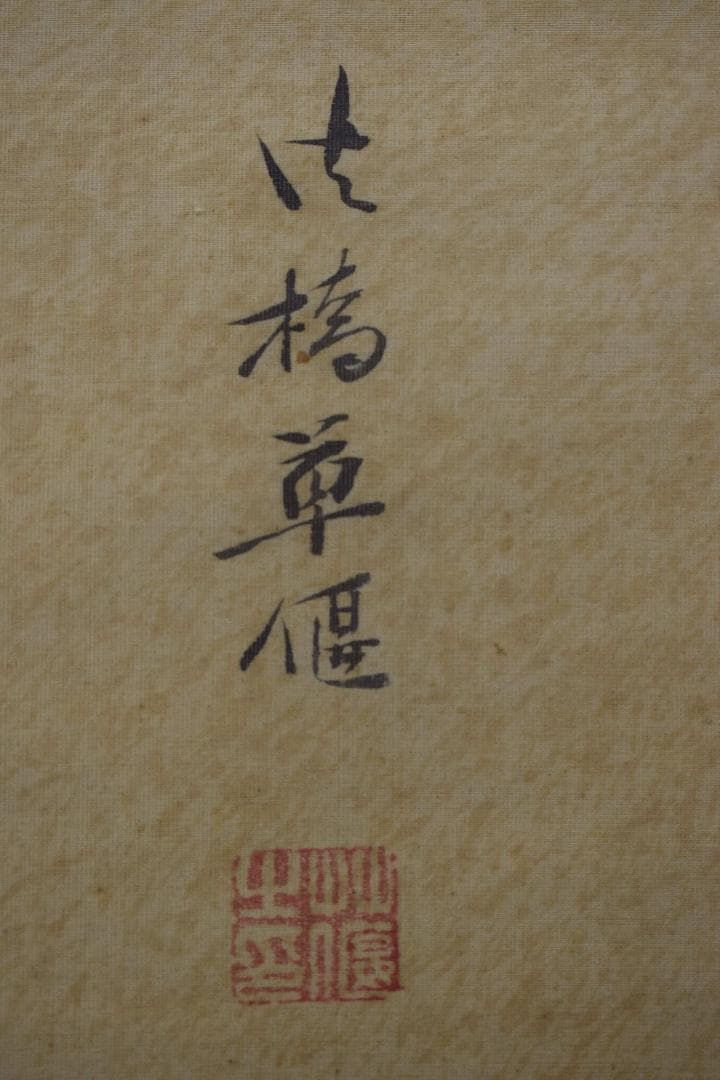 法橋草偃
艸偃之印